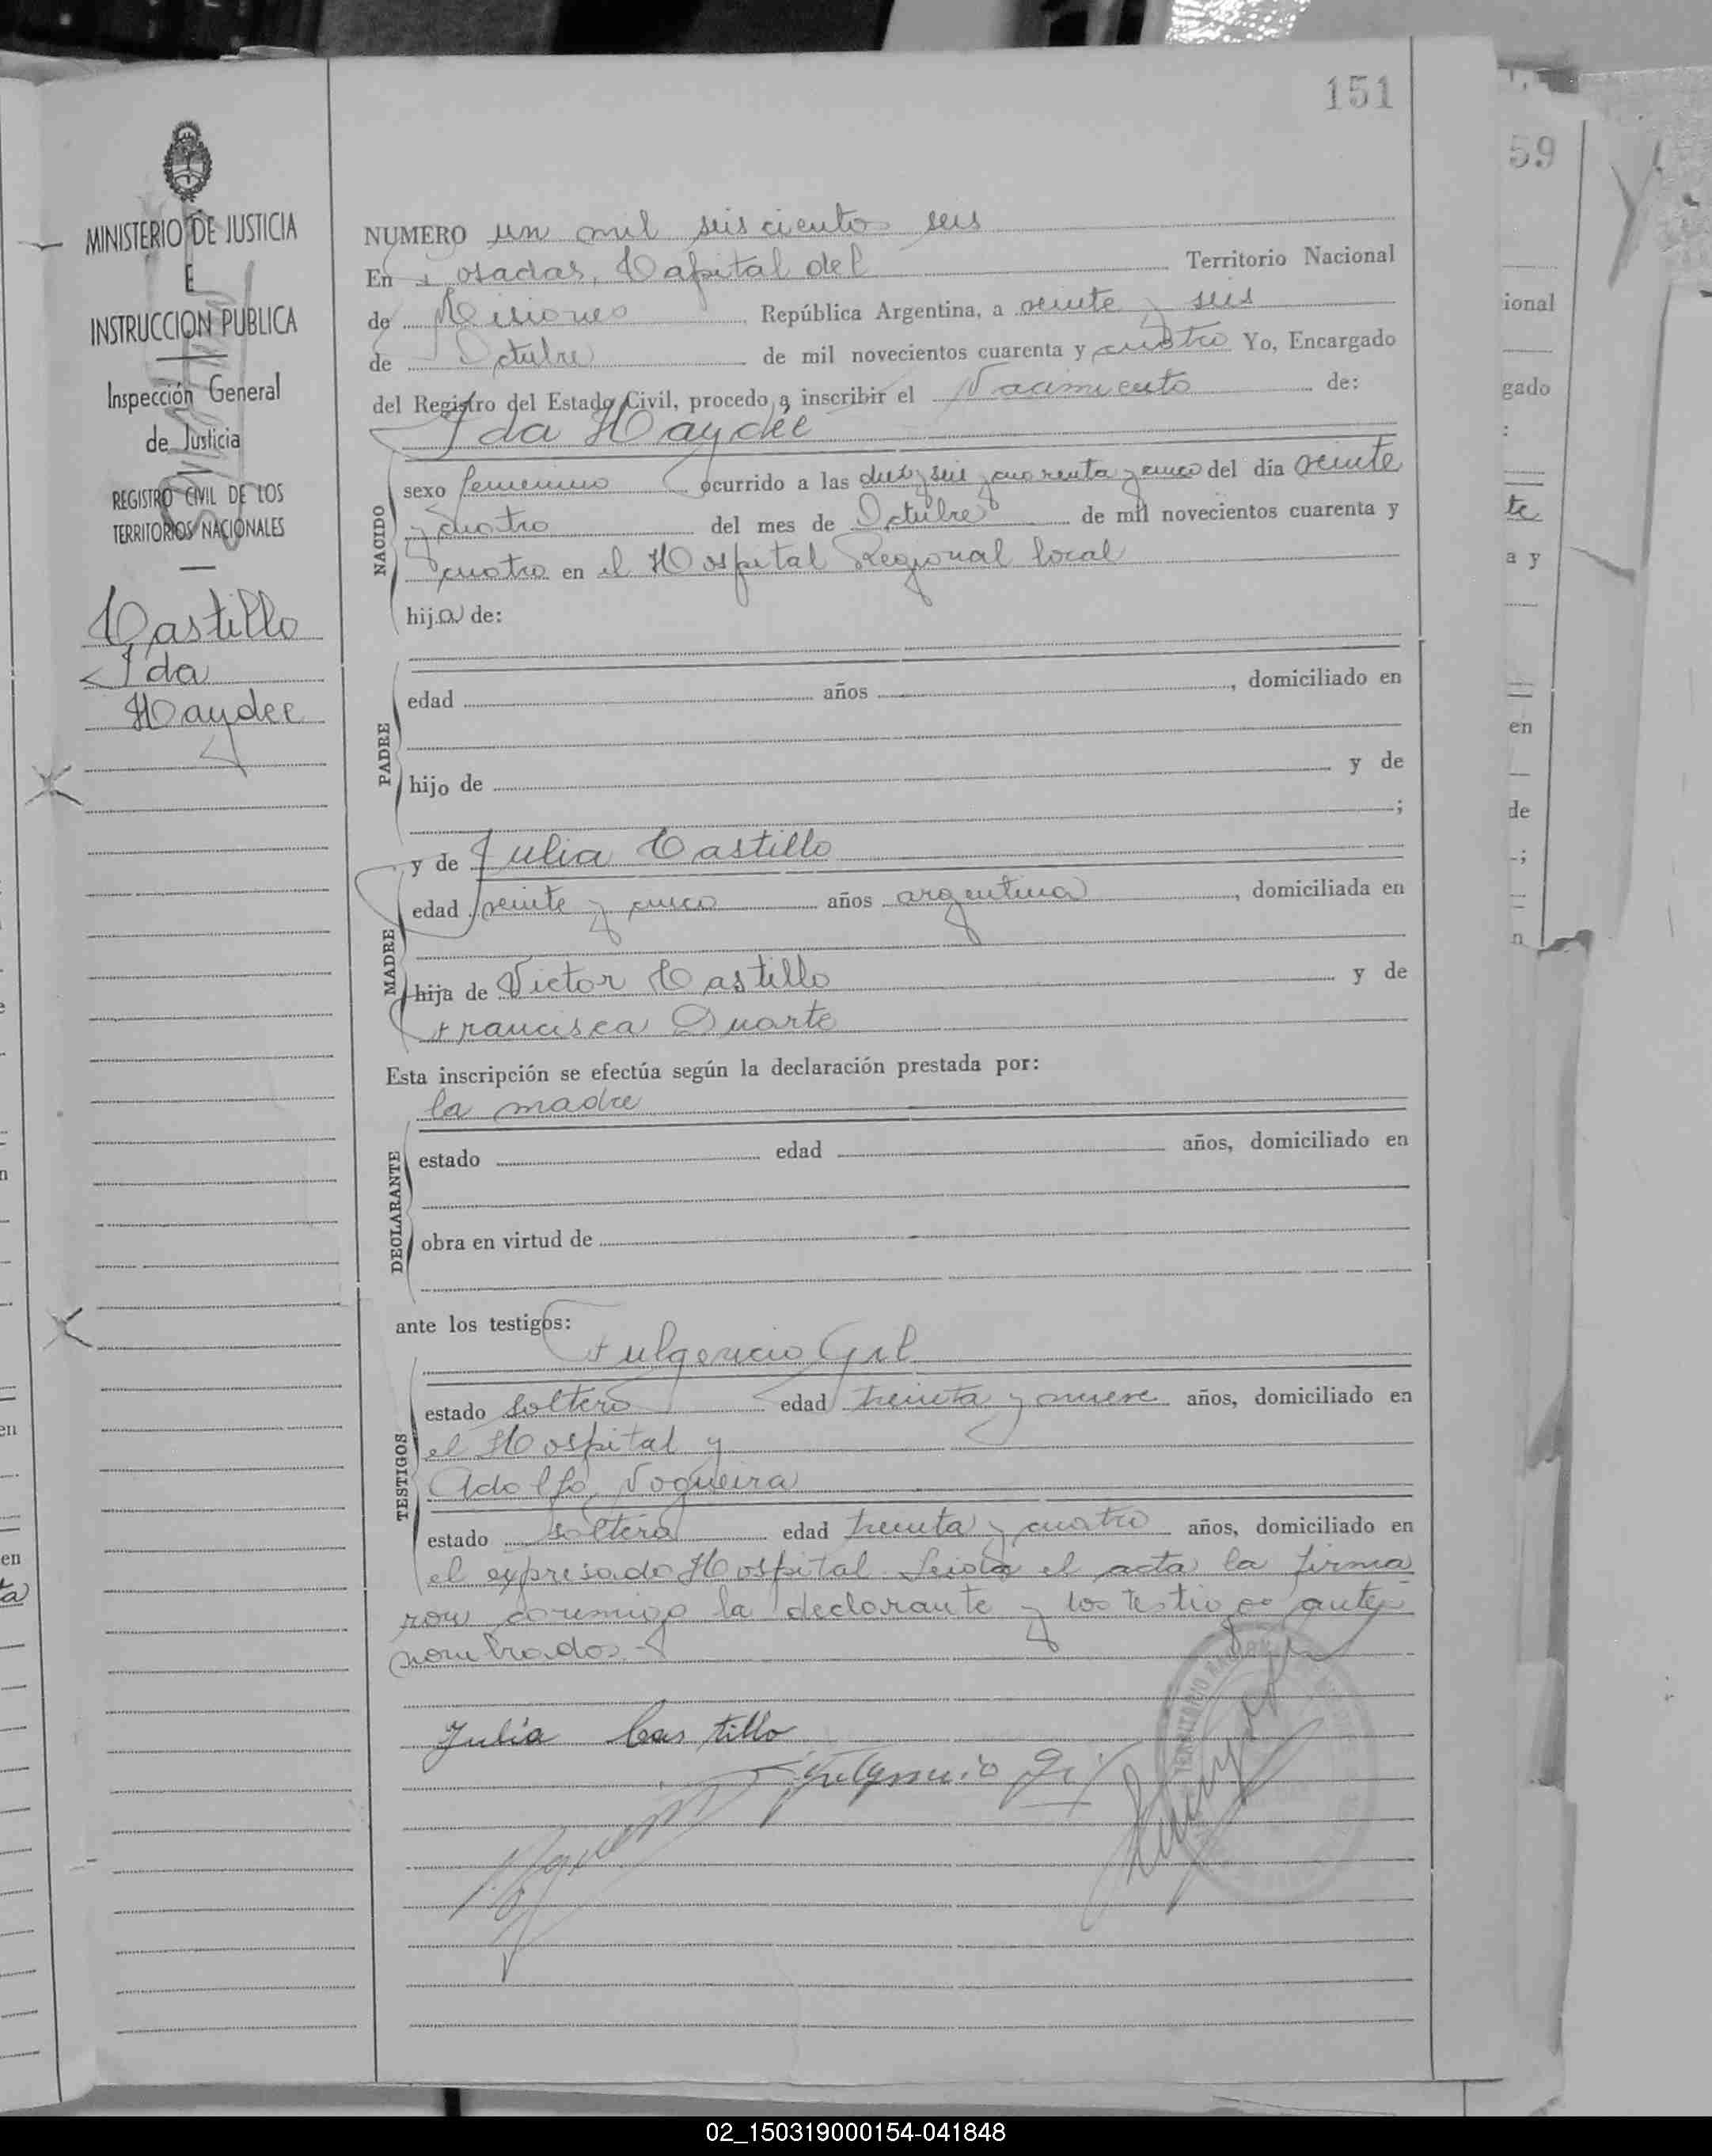 151
59
MINISTERIO DE JUSTICIA
E
INSTRUCCION PUBLICA
Inspección General
de Justicia
REGISTRO CIVIL DE LOS
TERRITORIOS NACIONALES
Castillo
Ida
Haydee
NUMERO un mil seis cientos seis
En Posadas, Capital del Territorio Nacional
de Misiones República Argentina, a veinte y seis
de Octubre de mil novecientos cuarenta y cuatro Yo, Encargado
del Registro del Estado Civil, procedo a inscribir el Nacimiento de:
Ida Haydée
NACIDO
sexo femenino ocurrido a las diez y seis y cuarenta y cinco del día veinte
y cuatro del mes de Octubre de mil novecientos cuarenta y
cuatro en el Hospital Regional local
hija de:
PADRE
edad años , domiciliado en
hijo de y de
;
MADRE
y de Julia Castillo
edad veinte y cinco años argentina , domiciliada en
hija de Victor Castillo y de
Francisca Duarte
Esta inscripción se efectúa según la declaración prestada por:
la madre
DECLARANTE
estado edad años, domiciliado en
obra en virtud de
ante los testigos:
Fulgencio Gil
TESTIGOS
estado soltero edad treinta y nueve años, domiciliado en
el Hospital y
Adolfo Nogueira
estado soltero edad treinta y cuatro años, domiciliado en
el expresado Hospital. Leida el acta la firma
ron conmigo la declarante y los testigos ante
nombrados.-
Julia Castillo
Fulgencio Gil
ional
gado
:
te
a y
en
de
-;
n
en
en
ta
02_150319000154-041848